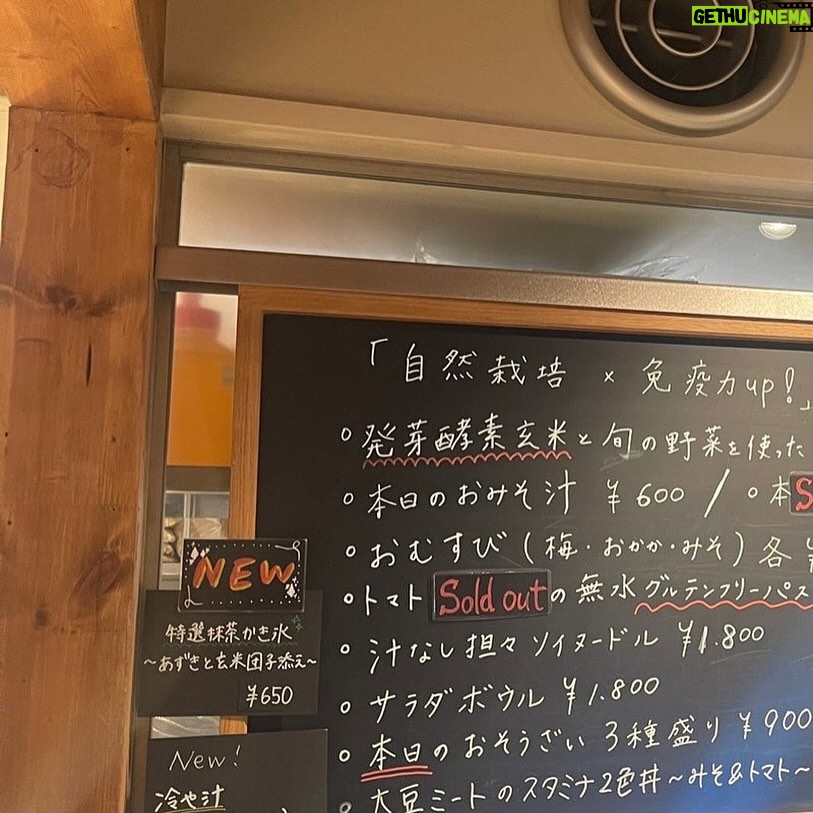 GETHUCINEMA
「自然栽培 × 免疫力up!」
○発芽酵素玄米と旬の野菜を使った
○本日のおみそ汁 ¥600 / ○本
○おむすび(梅・おかか・みそ)各
○トマト Sold outの無水グルテンフリーパス
○汁なし担々ソイヌードル ¥1.800
○サラダボウル ¥1.800
○本日のおそうざい3種盛り ¥900
○大豆ミートのスタミナ2色丼〜みそ&トマト〜
NEW
特選抹茶かき氷
〜あずきと玄米団子添え〜
¥650
New!
冷や汁